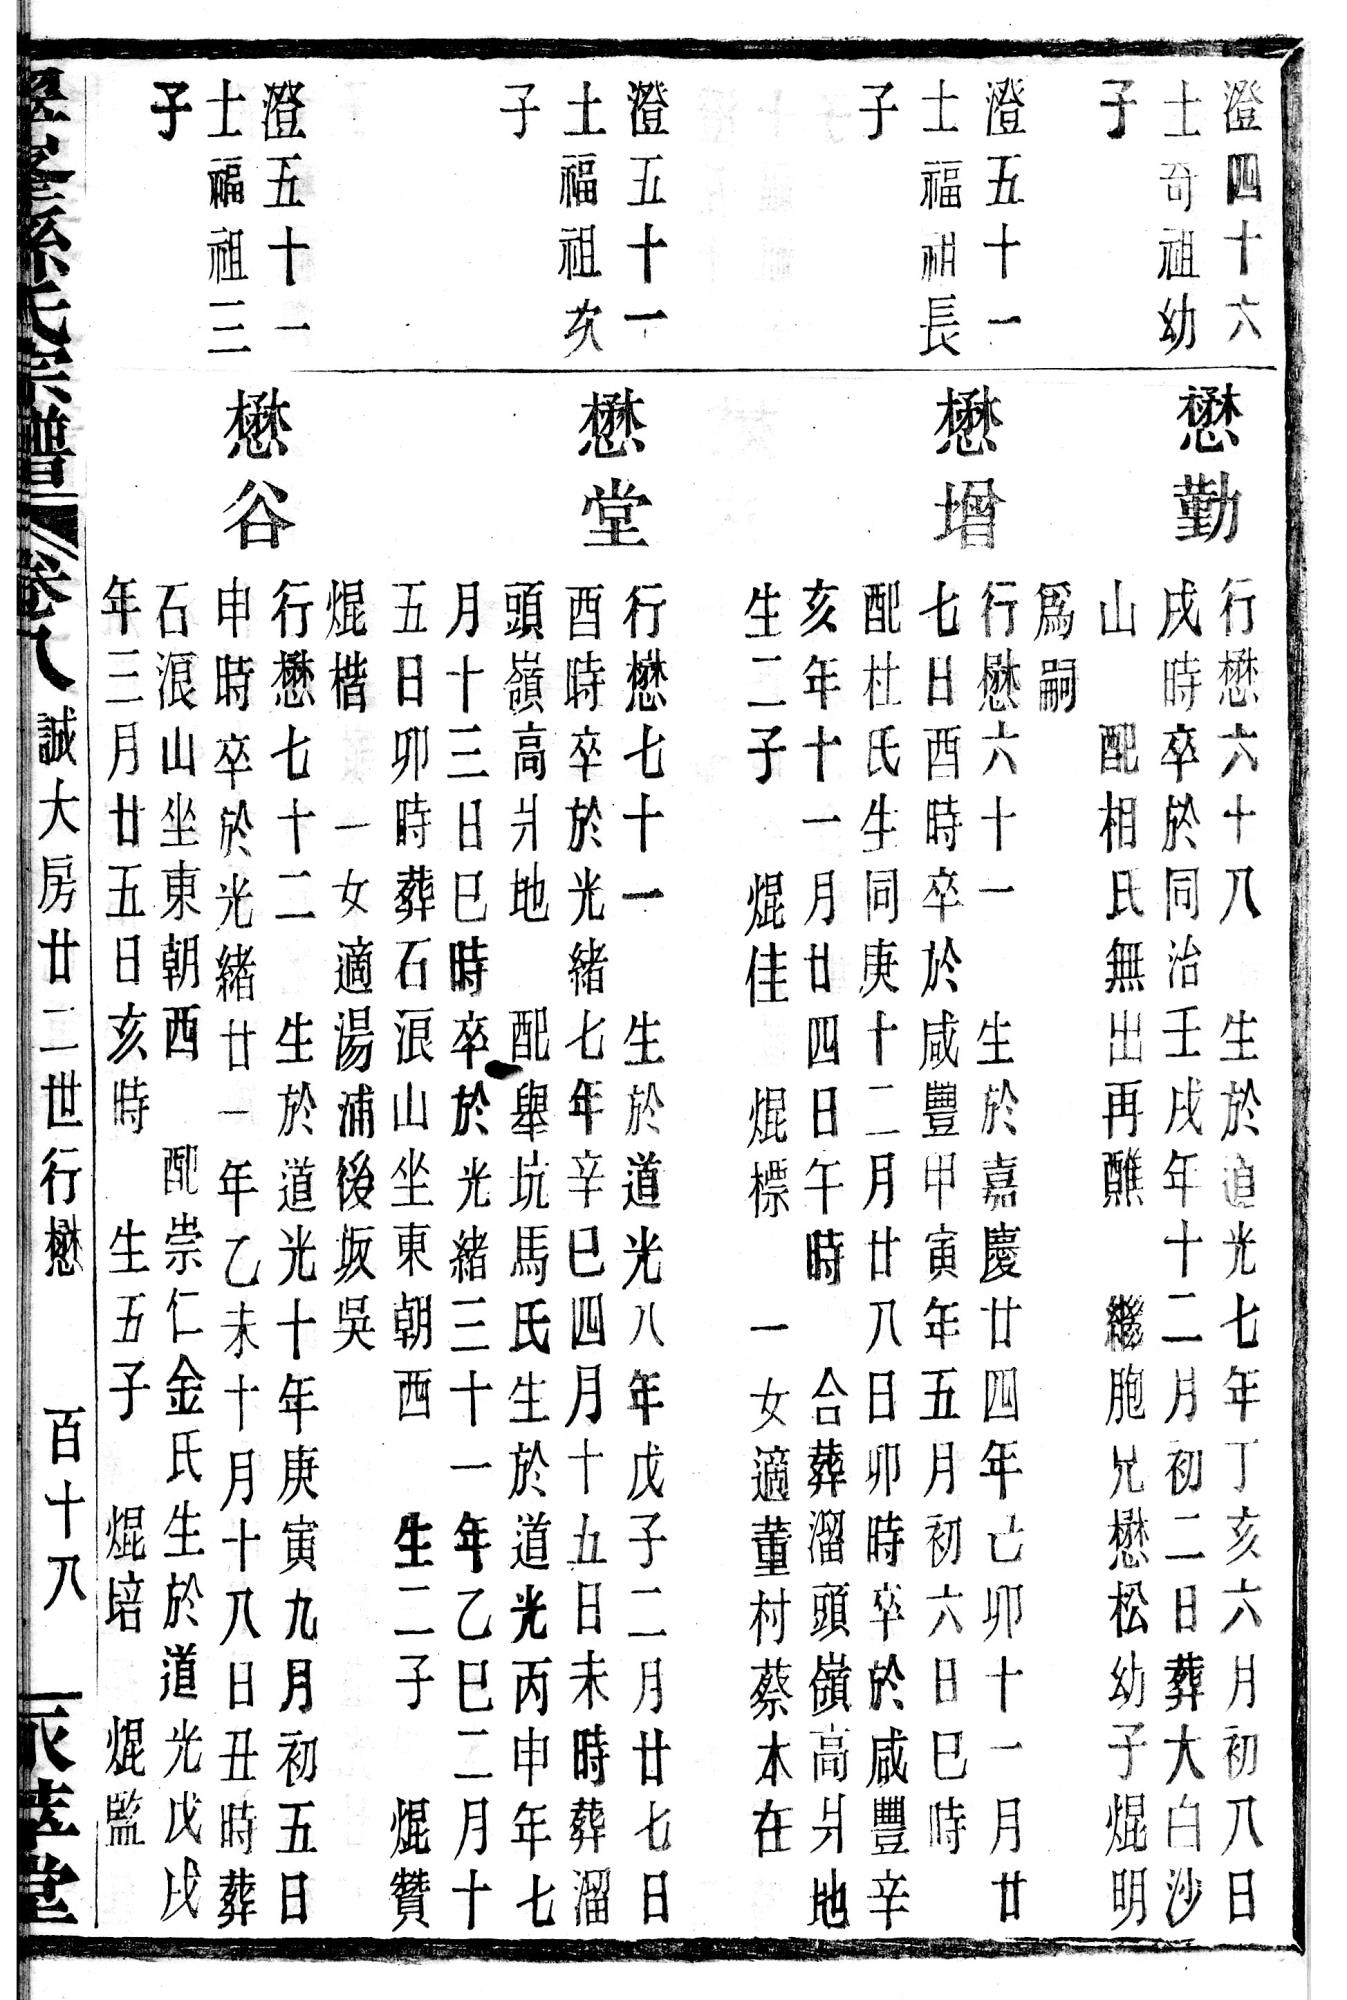 澄四十六
士奇祖幼
子
懋勤
行懋六十八　生於道光七年丁亥六月初八日
戌時卒於同治壬戌年十二月初二日葬大白沙
山　配相氏無出再醮　繼胞兄懋松幼子焜明
爲嗣
澄五十一
士福祖長
子
懋增
行懋六十一　生於嘉慶廿四年己卯十一月廿
七日酉時卒於咸豐甲寅年五月初六日巳時
配杜氏生同庚十二月廿八日卯時卒於咸豐辛
亥年十一月廿四日午時　合葬溜頭嶺高爿地
生二子　焜佳　焜標　一女適董村蔡本在
澄五十一
士福祖次
子
懋堂
行懋七十一　生於道光八年戊子二月廿七日
酉時卒於光緒七年辛巳四月十五日未時葬溜
頭嶺高爿地　配舉坑馬氏生於道光丙申年七
月十三日巳時卒於光緒三十一年乙巳二月十
五日卯時葬石浪山坐東朝西　生二子　焜贊
焜楷　一女適湯浦後坂吳
澄五十一
士福祖三
子
懋谷
行懋七十二　生於道光十年庚寅九月初五日
申時卒於光緒廿一年乙未十月十八日丑時葬
石浪山坐東朝西　配崇仁金氏生於道光戊戌
年三月廿五日亥時　生五子　焜培　焜監
孫氏宗譜　卷八　誠大房廿二世行懋　百十八　堂